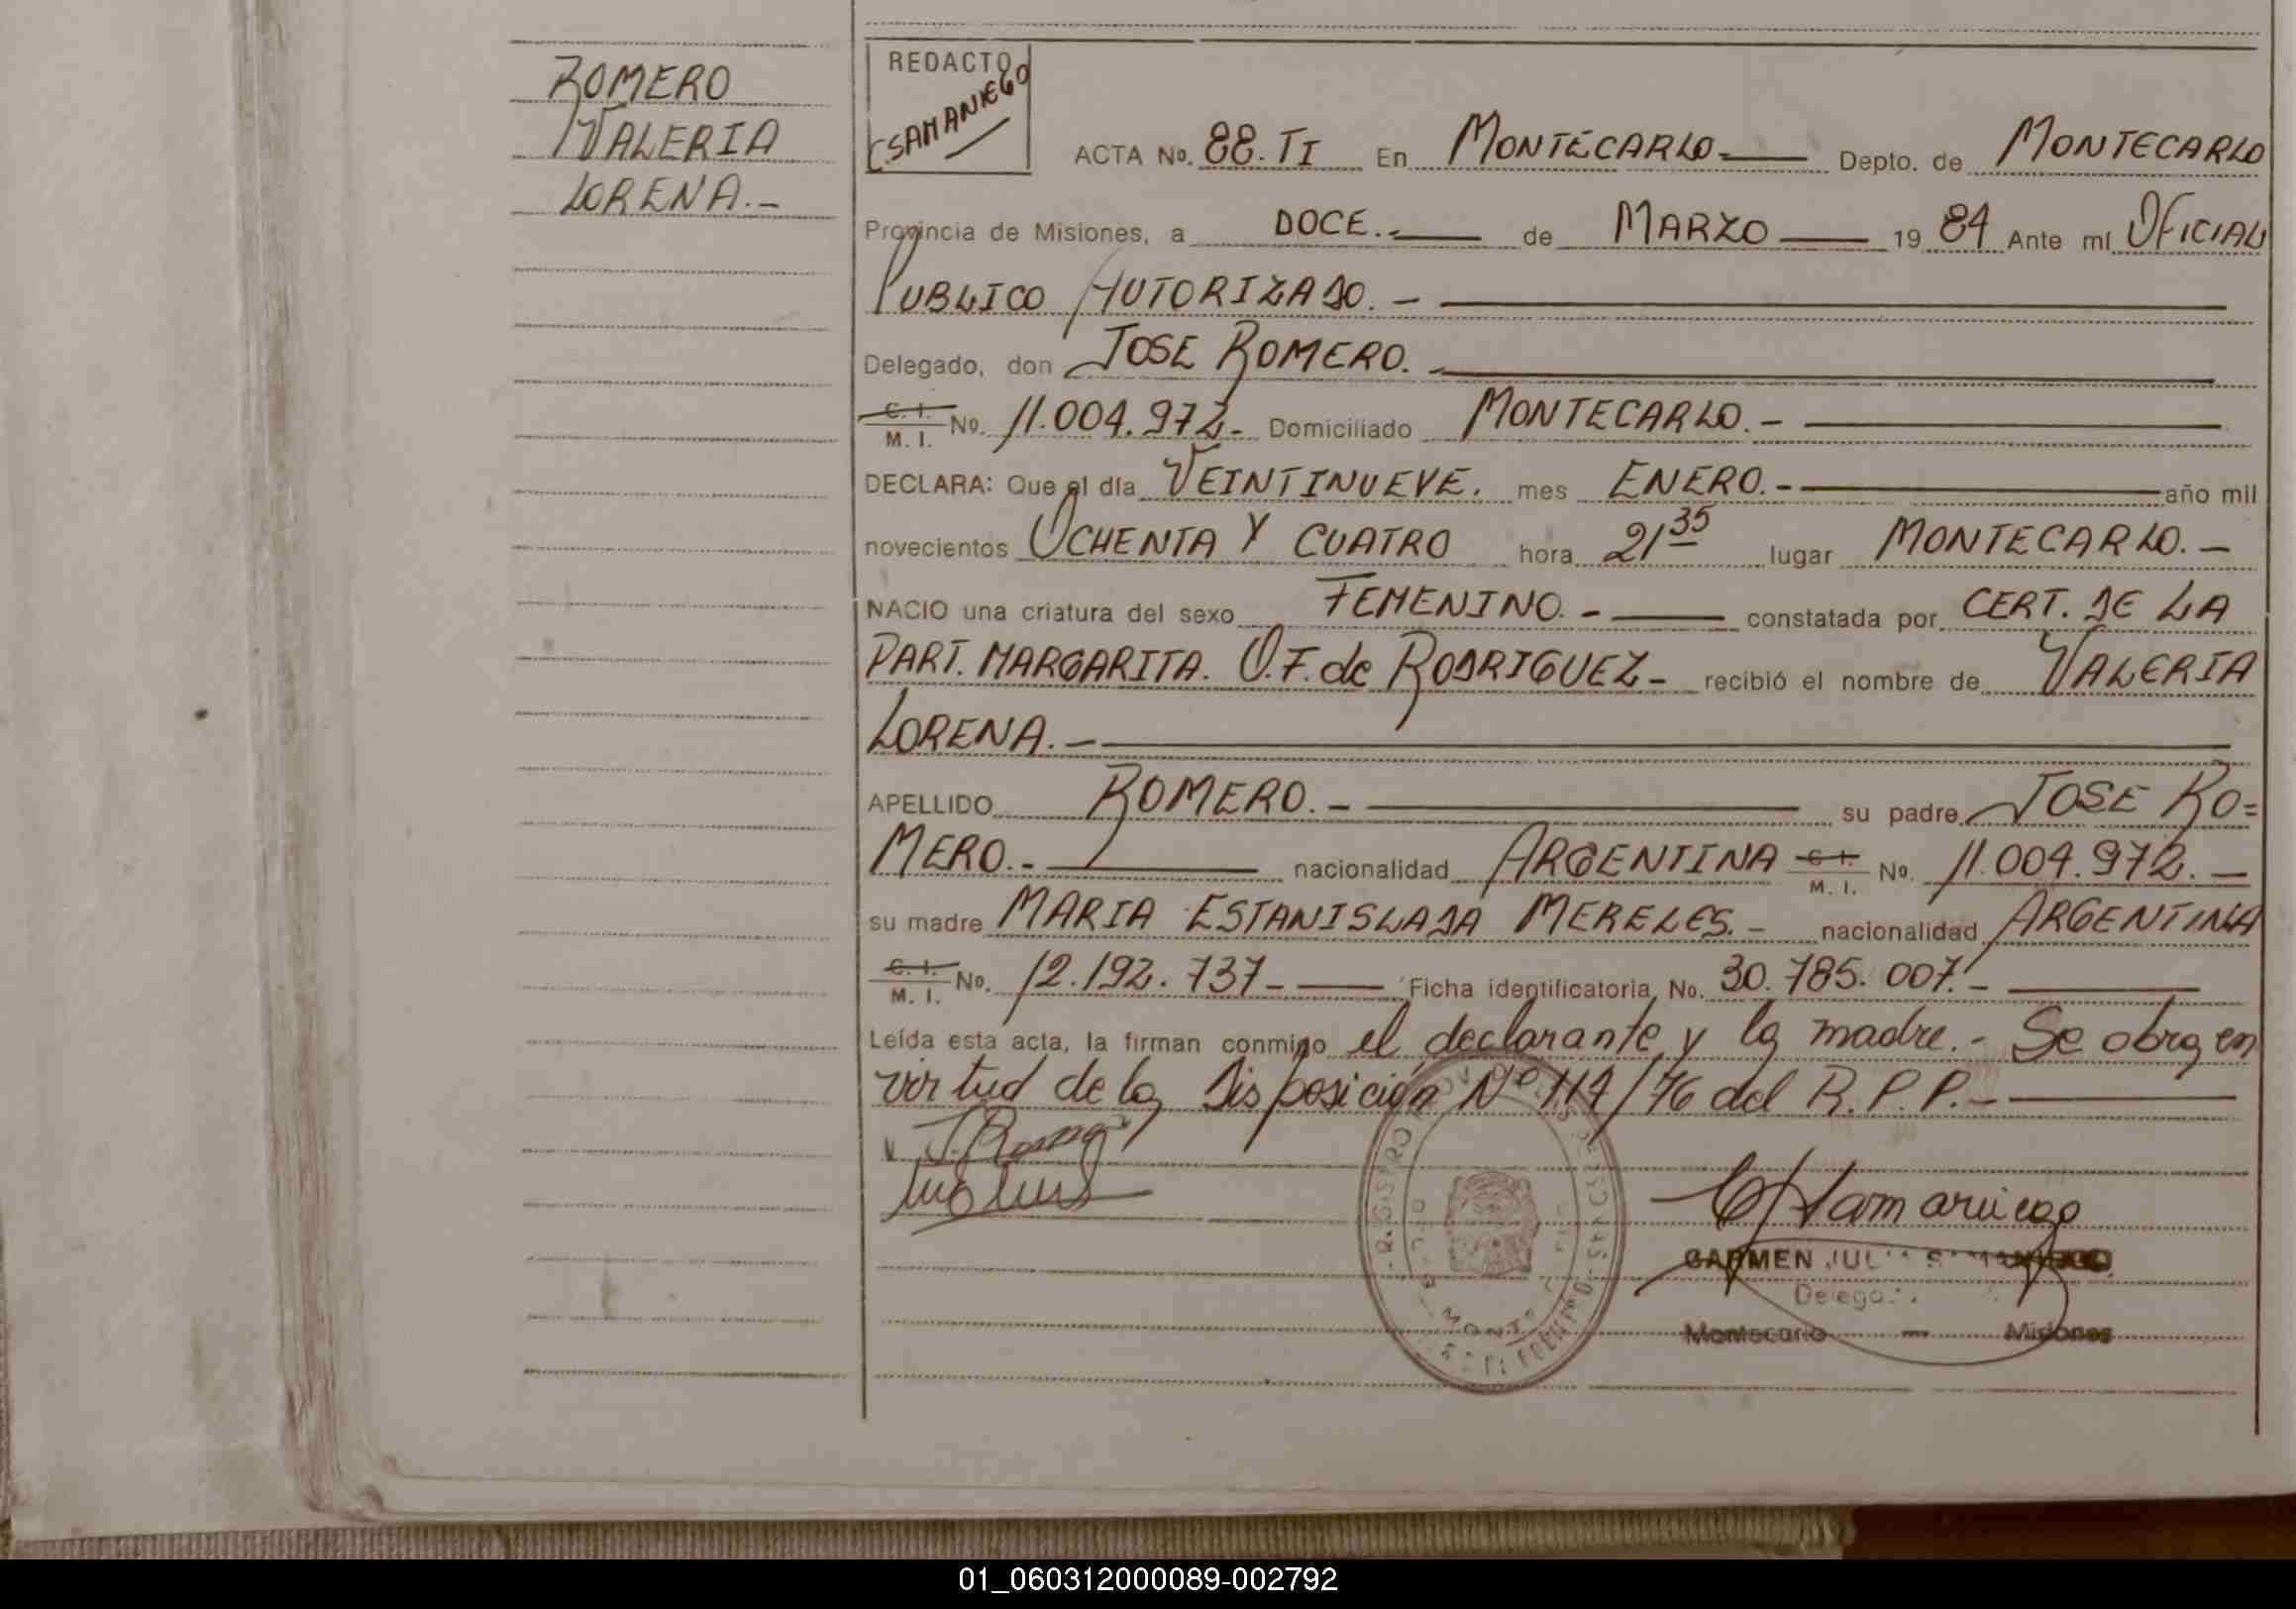 ROMERO
VALERIA
LORENA.-
REDACTO
CSAMANIEGO
ACTA No. 88. TI En MONTECARLO- Depto. de MONTECARLO
Provincia de Misiones, a DOCE.- de MARZO 19 84 Ante mí OFICIAL
PUBLICO AUTORIZADO. -
Delegado, don JOSE ROMERO. -
C. I.
M. I. No. 11.004.972- Domiciliado MONTECARLO. -
DECLARA: Que el día VEINTINUEVE. mes ENERO. - año mil
novecientos OCHENTA Y CUATRO hora 21 35 lugar MONTECARLO. -
NACIO una criatura del sexo FEMENINO. - constatada por CERT. DE LA
PART. MARGARITA. O.F. de RODRIGUEZ- recibió el nombre de VALERIA
LORENA. -
APELLIDO ROMERO. - su padre JOSE RO=
MERO. - nacionalidad ARGENTINA C. I.
M. I. No. 11.004.972. -
su madre MARIA ESTANISLADA MERELES. - nacionalidad ARGENTINA
C. I.
M. I. No. 12.192.737- Ficha identificatoria No. 30.785.007. -
Leída esta acta, la firman conmigo el declarante y la madre. - Se obra en
virtud de la Disposición Nº 117/76 del R. P. P. -
CSamaniego
CARMEN
Delega
Montecarlo - Misiones
01_060312000089-002792